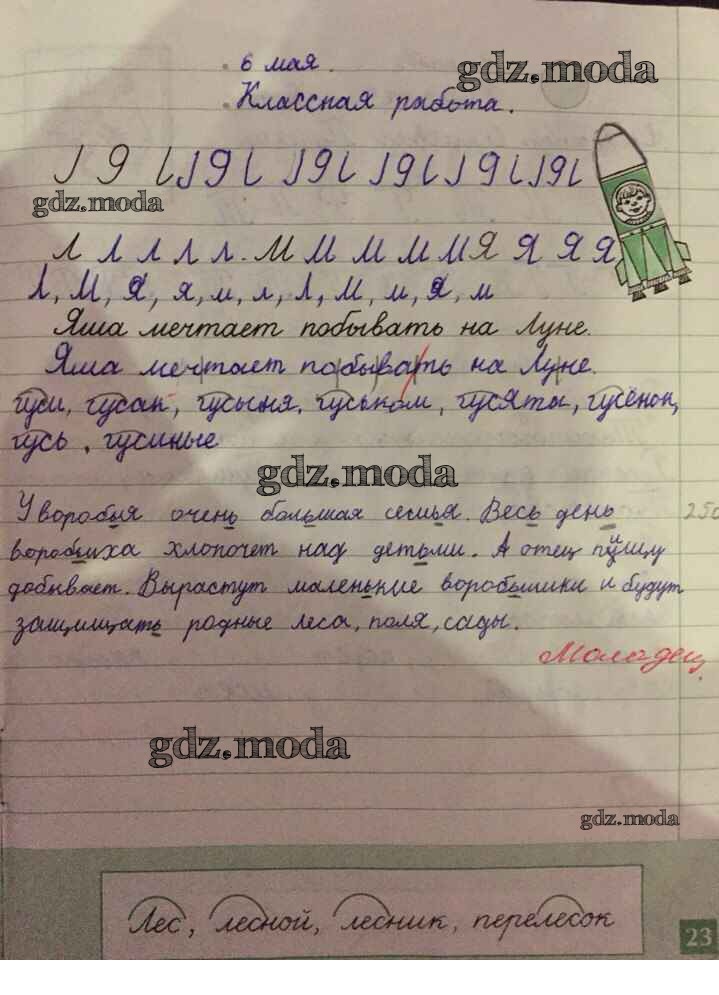 6 мая.
gdz.moda
Классная работа.
gdz.moda
Л Л Л Л Л. М М М М М Я Я Я Я
Л, М, Я, я, м, л, Л, М, м, Я, м
Яша мечтает побывать на Луне.
Яша мечтает побывать на Луне.
гуси, гусак, гусыня, гуськом, гусята, гусёнок,
гусь, гусиные
gdz.moda
У воробья очень большая семья. Весь день
воробьиха хлопочет над детьми. А отец пищу
добывает. Вырастут маленькие воробьишки и будут
защищать родные леса, поля, сады.
Молодец
gdz.moda
gdz.moda
Лес, лесной, лесник, перелесок
23